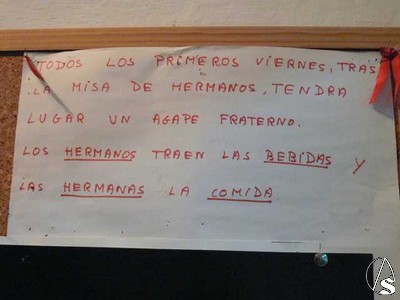 TODOS LOS PRIMEROS VIERNES, TRAS
LA MISA DE HERMANOS, TENDRA
LUGAR UN AGAPE FRATERNO.
LOS HERMANOS TRAEN LAS BEBIDAS Y
LAS HERMANAS LA COMIDA